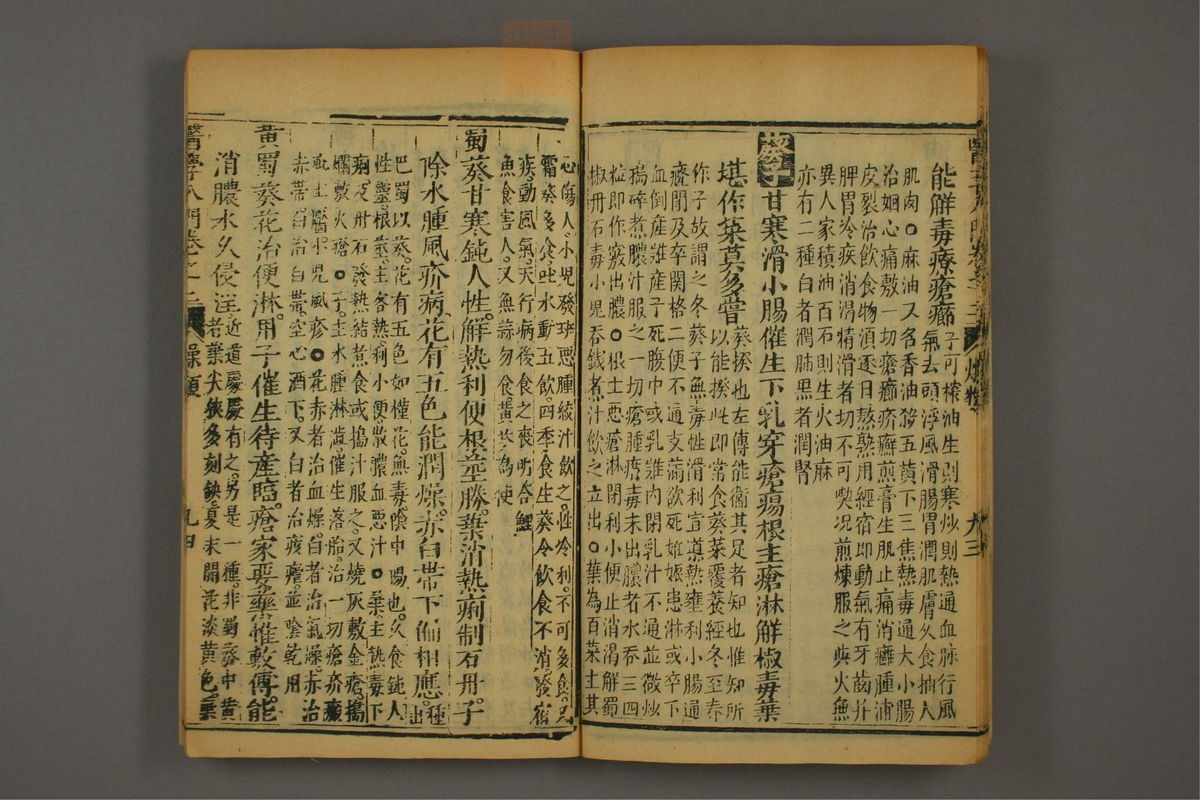 能解毒療瘡癤子可榨油生則寒炒則熱通血脉行風
氣去頭浮風滑腸胃潤肌膚久食抽人
肌肉○麻油又名香油發五黄下三焦熱毒通大小腸
治蛔心痛敷一切瘡癤疥癬煎膏生肌止痛消癰腫補
皮裂治飲食物須逐日熬熟用經宿即動氣有牙齒并
脾胃冷疾消渴精滑者切不可喫况煎煉服之與火無
異人家積油百石則生火油麻
亦有二種白者潤肺黒者潤腎
葵子甘寒滑小腸催生下乳穿瘡瘍根主瘡淋解椒毒葉
堪作菜莫多嘗葵揆也左傳能衞其足者知也惟知所
以能揆此即常食葵菜覆養經冬至春
作子故謂之冬葵子無毒性滑利宣導熱壅利小腸通
癃閉及卒関格二便不通支滿欲死姙娠患淋或卒下
血倒産難産子死腹中或乳難内閉乳汁不通並微炒
搗碎煮濃汁服之一切瘡腫癤毒未出膿者水吞三四
粒即作竅出膿○根主惡瘡淋閉利小便止消渴解蜀
椒丹石毒小児吞錢煮汁飲之立出○葉為百菜主其
心傷人小児發班惡腫絞汁飲之性冷利不可多食
霜葵多食吐水動五飲四季食生葵令飲食不消發宿
疾動風氣天行病後食之喪明合鯉
魚食害人又無蒜勿食黄芩為使
蜀葵甘寒鈍人性解熱利便根莖勝葉治熱痢制石丹子
除水腫風疥病花有五色能潤燥赤白帯下偏相應種出
巴蜀以葵花有五色如槿花無毒陰中陽也久食鈍人
性靈根莖主各熱利小便散膿血惡汁○葉主熱毒下
痢及丹石發熱結煮食或搗汁服之又燒灰敷金瘡搗
爛敷火瘡○子主水腫淋澁催生落胎治一切瘡疥
主小児風疹○花赤者治血燥白者治氣燥赤治
赤帯白治白帯空心酒下又白者治痎瘧並陰乾用
黄蜀葵花治便淋用子催生待産臨瘡家要藥惟敷傅能
消膿水久侵淫近道處處有之另是一種非蜀葵中黄
者葉尖狹多刻缺夏末開花淡黄色葉
醫學入門卷之二
九四
九三